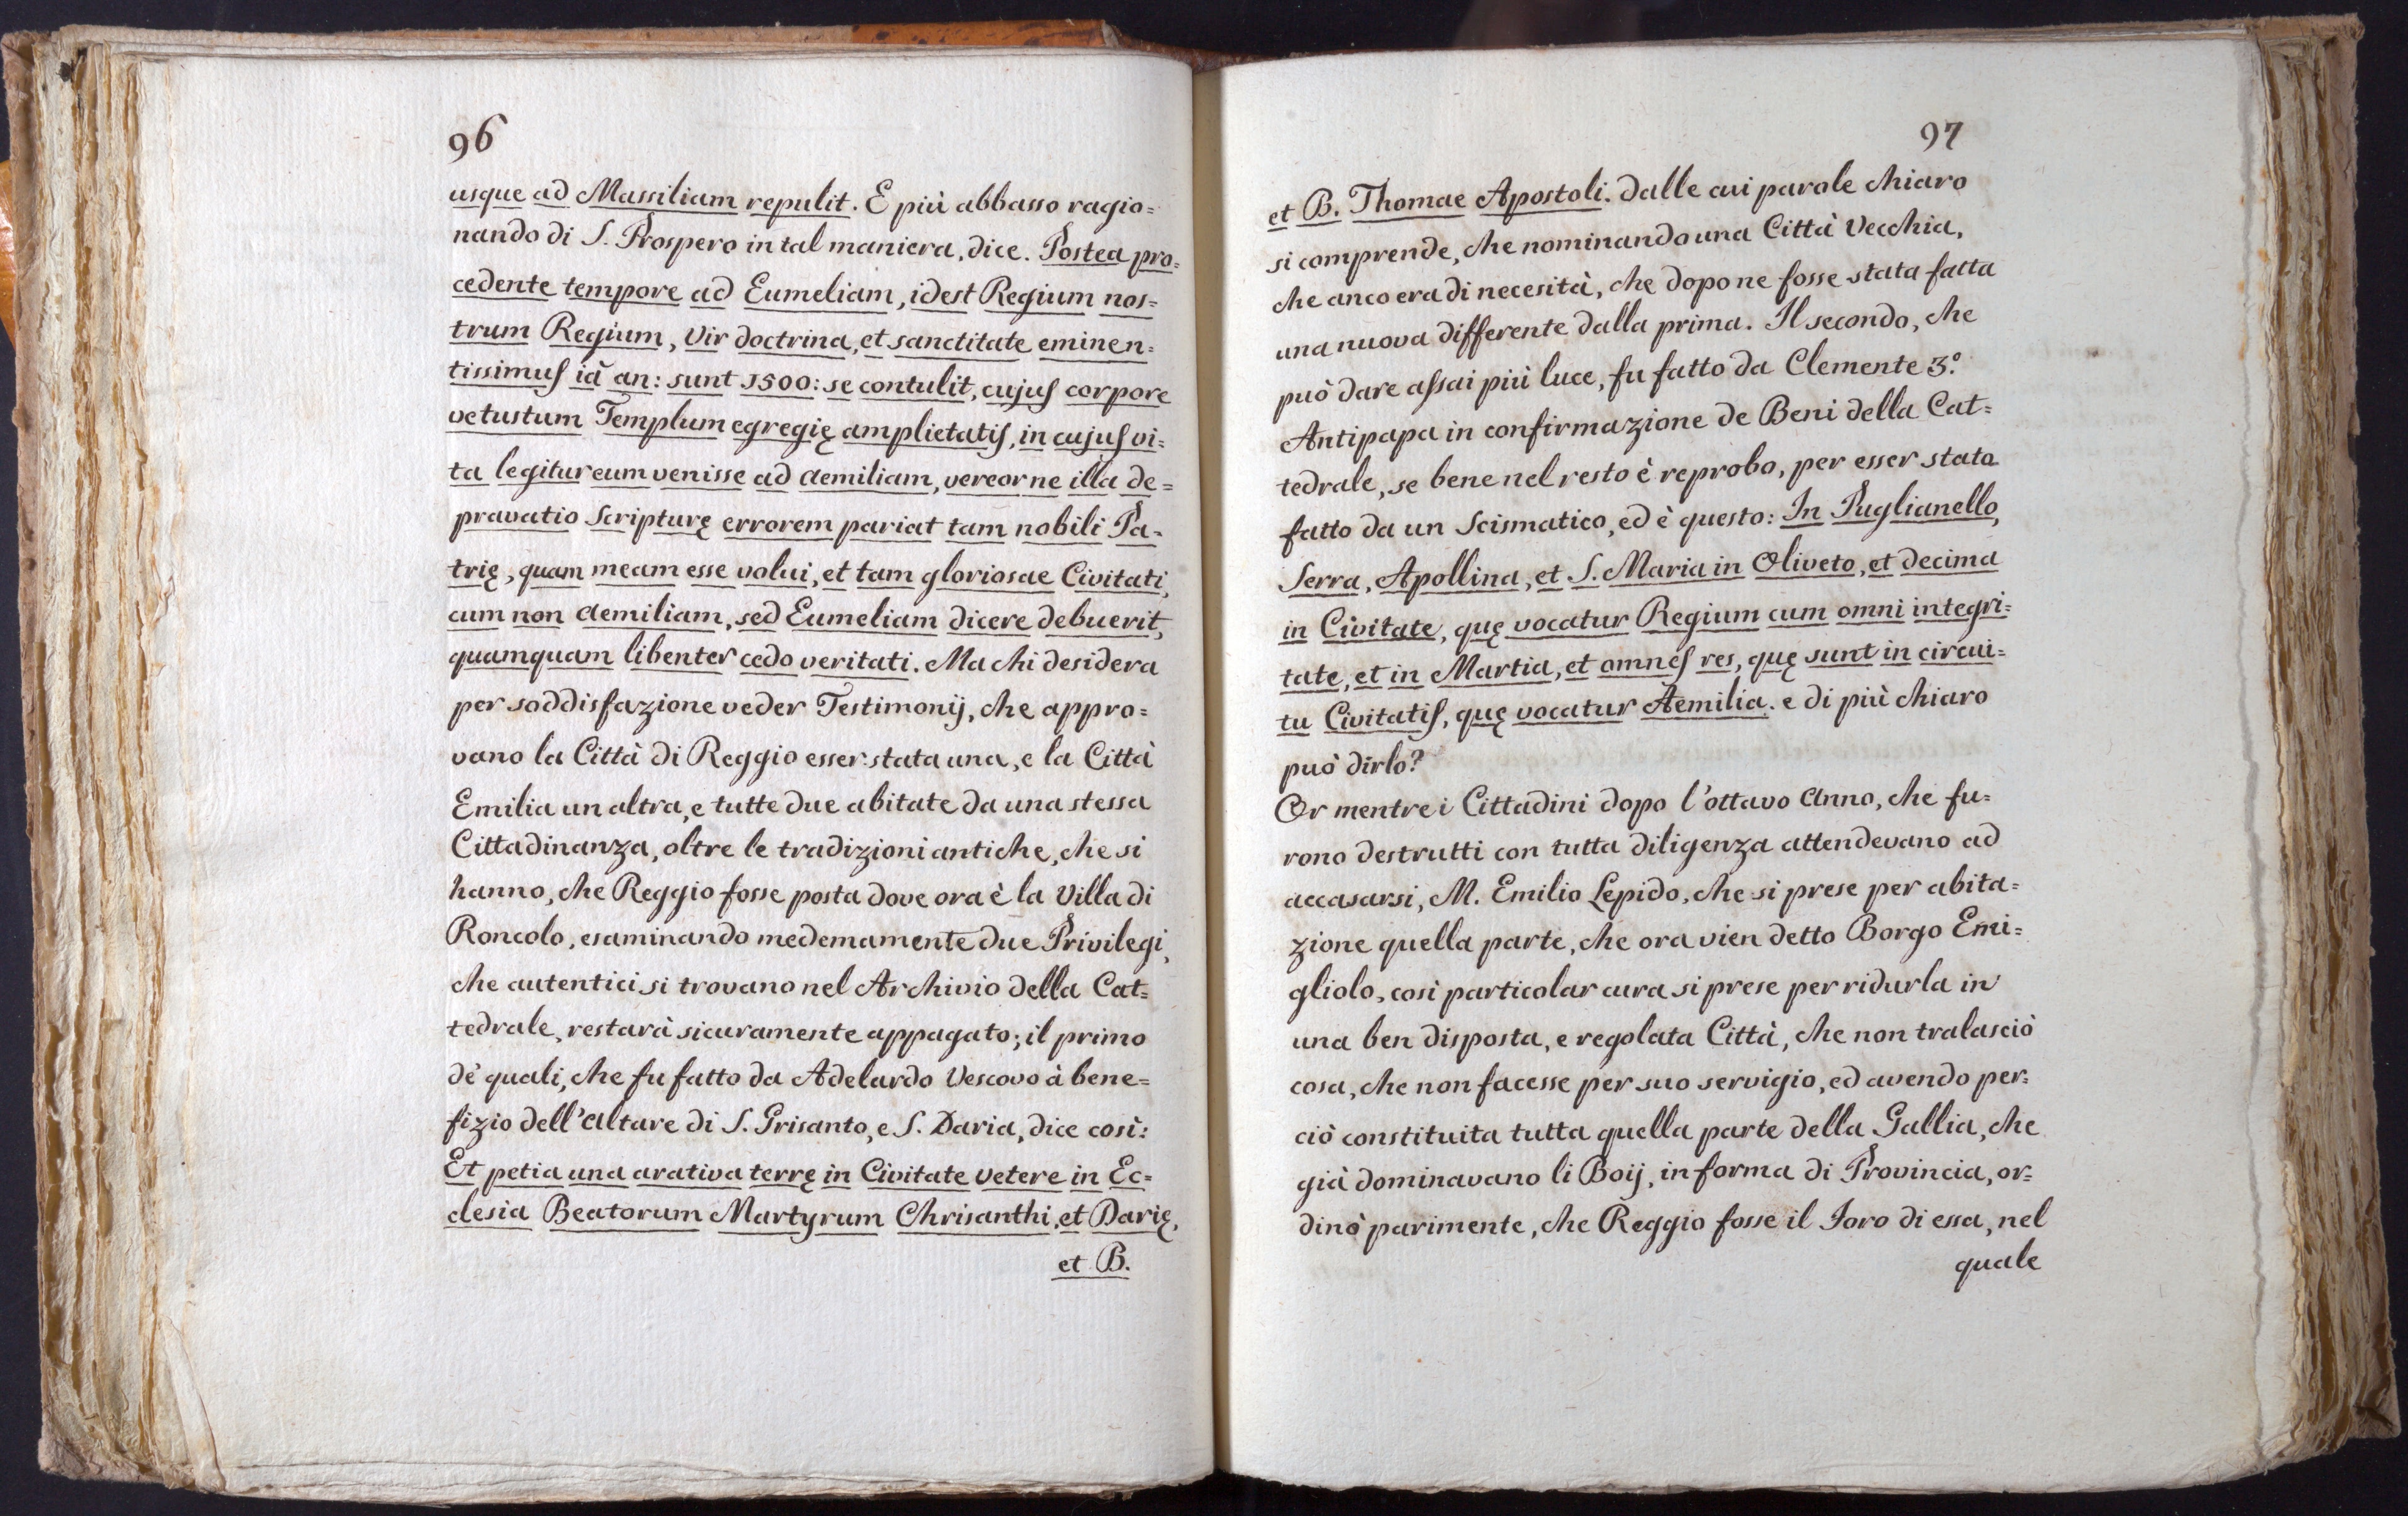 96
usque ad Massiliam repulit. E più abbasso ragio=
nando di S. Prospero in tal maniera, dice. Postea pro=
cedente tempore ad Eumeliam, idest Regium nos=
trum Regium, Vir doctrina, et sanctitate eminen=
tissimus iā an: sunt 1500: se contulit, cujus corpore
vetustum Templum egregię amplietatis, in cujus vi=
ta legitur eum venisse ad Aemiliam, vereor ne illa de=
pravatio Scripturę errorem pariat tam nobili Pa=
trię, quam meam esse volui, et tam gloriosae Civitati,
cum non Aemiliam, sed Eumeliam dicere debuerit,
quamquam libenter cedo veritati. Ma chi desidera
per soddisfazione veder Testimonij, che appro=
vano la Città di Reggio esser stata una, e la Città
Emilia un altra, e tutte due abitate da una stessa
Cittadinanza, oltre le tradizioni antiche, che si
hanno, che Reggio fosse posta dove ora è la Villa di
Roncolo, esaminando medemamente due Privilegi,
che autentici si trovano nel Archivio della Cat=
tedrale, restarà sicuramente appagato; il primo
de' quali, che fu fatto da Adelardo Vescovo à bene=
fizio dell'Altare di S. Grisanto, e S. Daria, dice così:
Et petia una arativa terrę in Civitate vetere in Ec=
clesia Beatorum Martyrum Chrisanthi, et Darię,
et B.
97
et B. Thomae Apostoli. Dalle cui parole chiaro
si comprende, che nominando una Città Vecchia,
che anco era di necesità, che dopo ne fosse stata fatta
una nuova differente dalla prima. Il secondo, che
può dare assai più luce, fu fatto da Clemente 3.º
Antipapa in confirmazione de Beni della Cat=
tedrale, se bene nel resto è reprobo, per esser stato
fatto da un Scismatico, ed è questo: In Puglianello,
Serra, Apollina, et S. Maria in Oliveto, et decima
in Civitate, quę vocatur Regium cum omni integri=
tate, et in Martia, et omnes res, quę sunt in circui=
tu Civitatis, quę vocatur Aemilia. e di più chiaro
può dirlo?
Or mentre i Cittadini dopo l'ottavo Anno, che fu=
rono destrutti con tutta diligenza attendevano ad
accasarsi, M. Emilio Lepido, che si prese per abita=
zione quella parte, che ora vien detto Borgo Emi=
gliolo, così particolar cura si prese per ridurla in
una ben disposta, e regolata Città, che non tralasciò
cosa, che non facesse per suo servigio, ed avendo per=
ciò constituita tutta quella parte della Gallia, che
già dominavano li Boij, in forma di Provincia, or=
dinò parimente, che Reggio fosse il Foro di essa, nel
quale